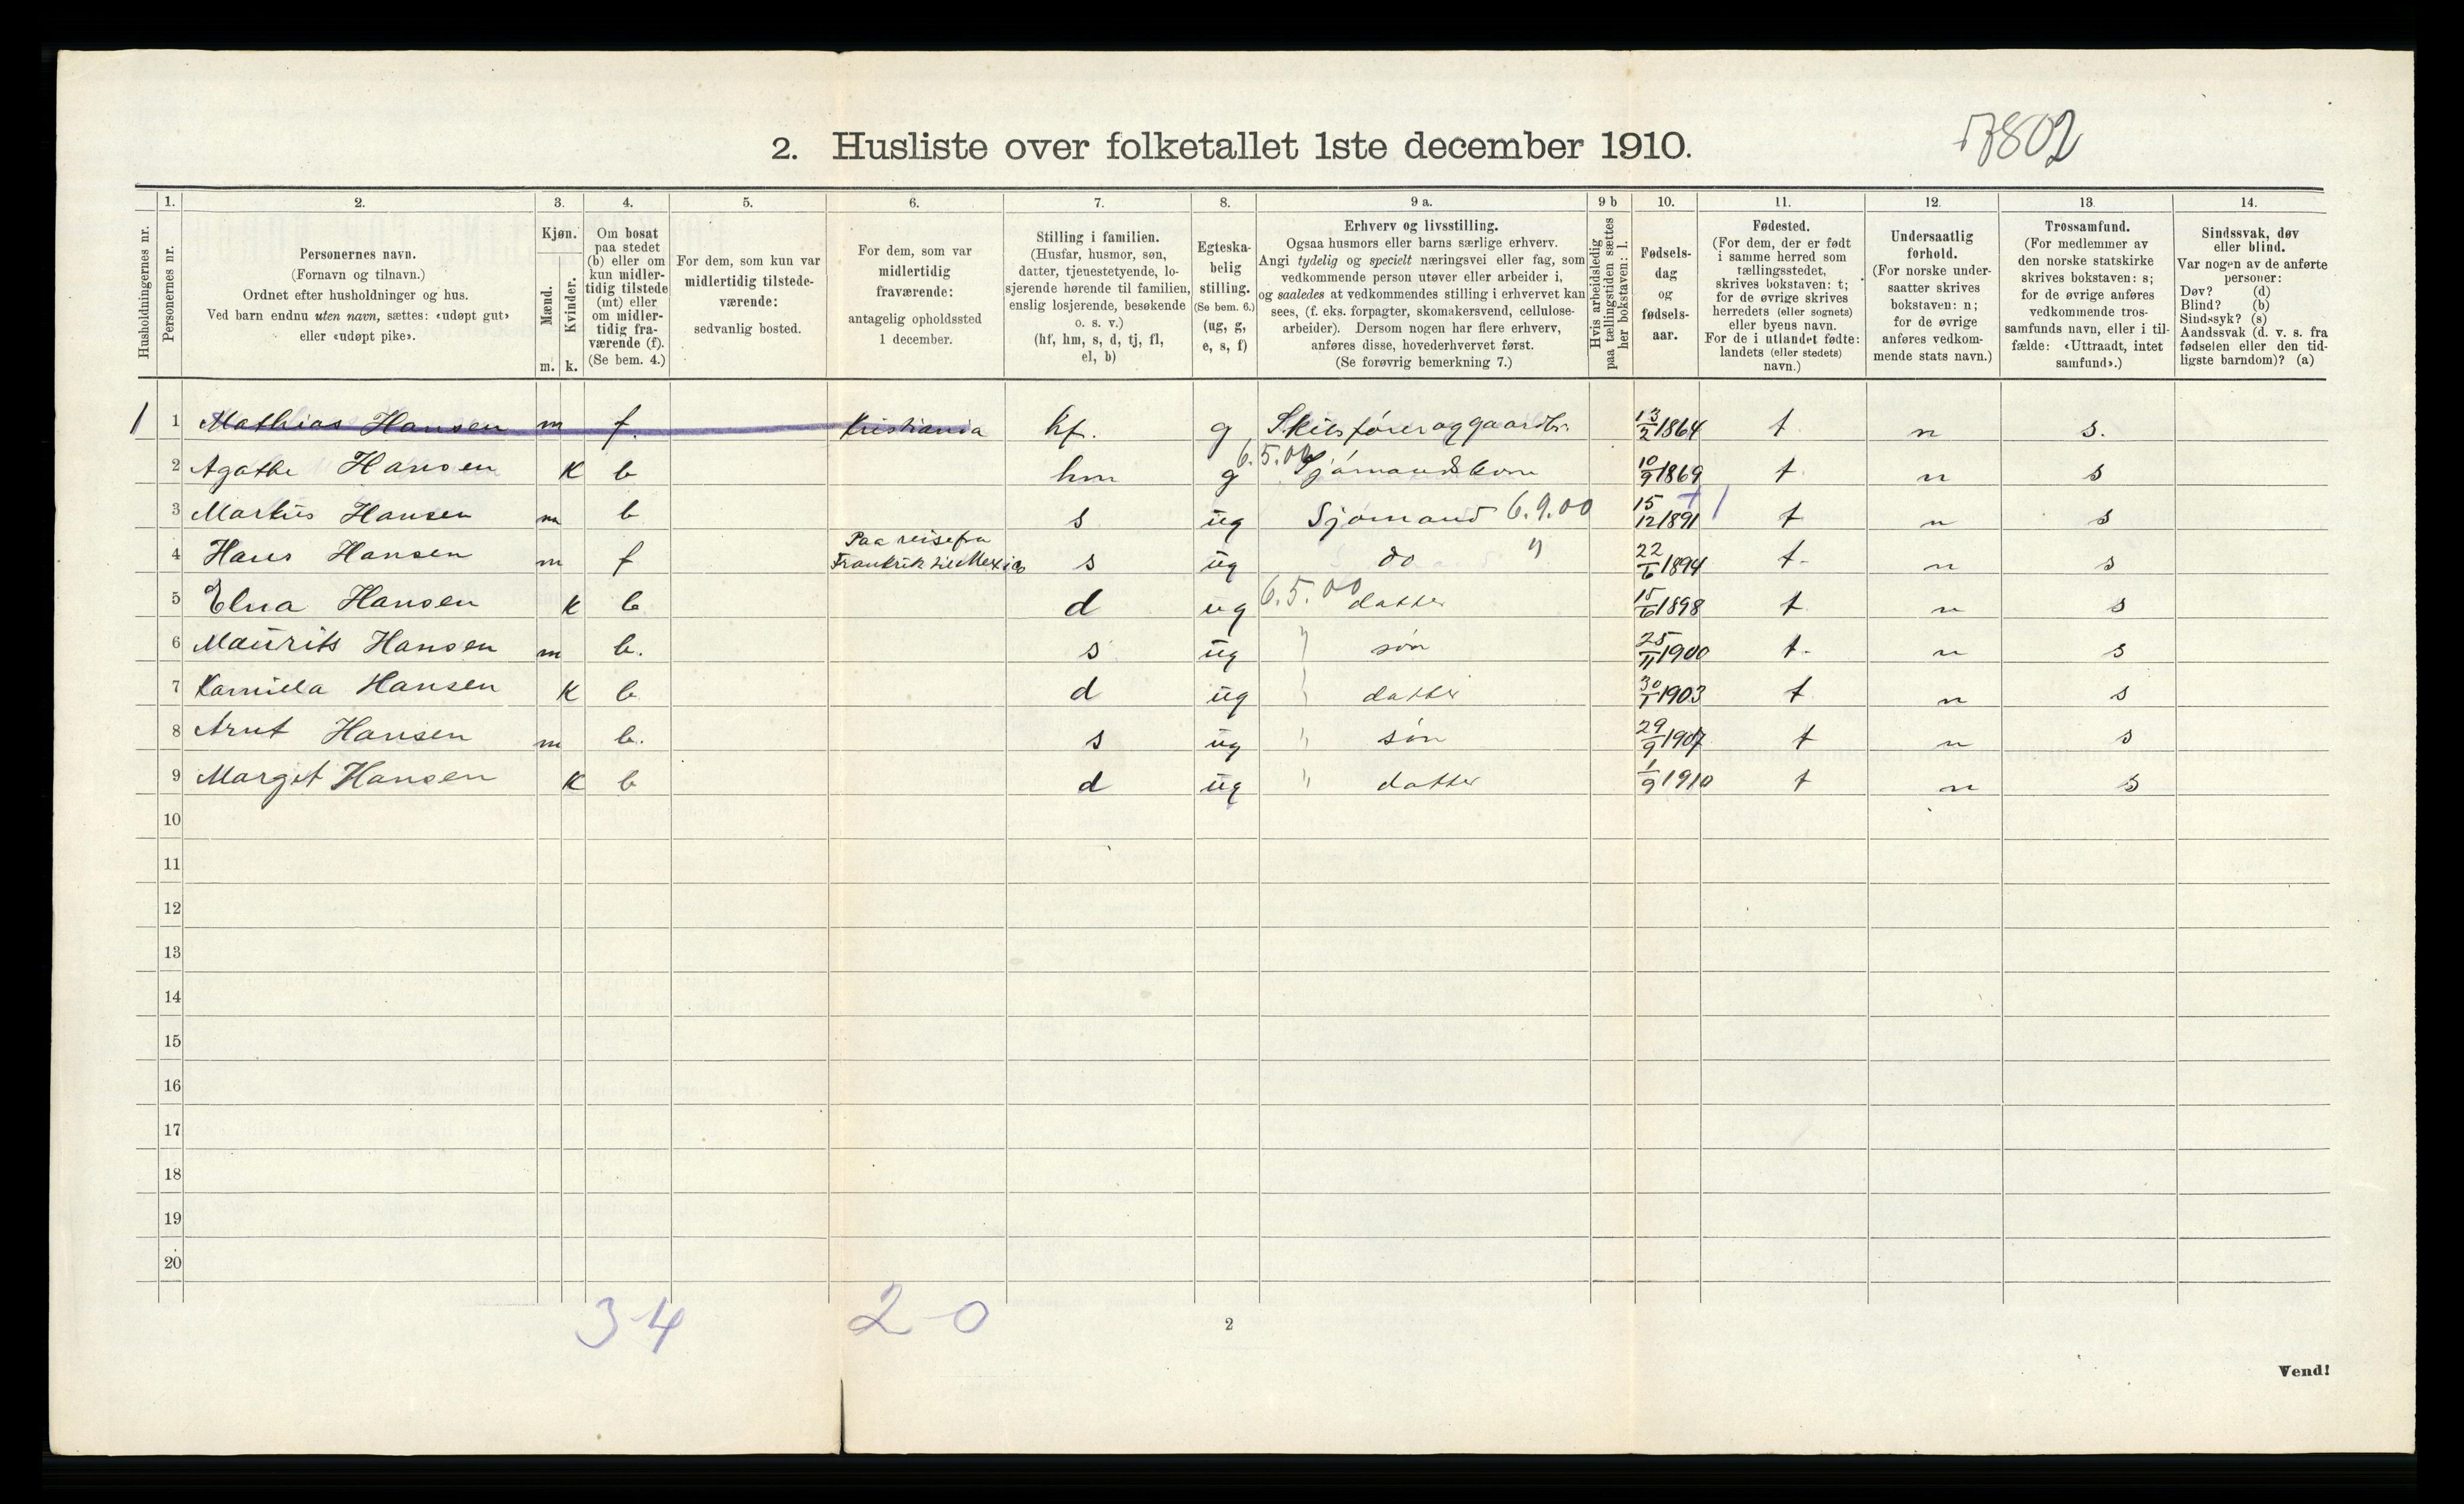 2. Husliste over folketallet 1ste december 1910.
Husholdningernes nr.
1.
Personernes nr.
2.
Personernes navn.
(Fornavn og tilnavn.)
Ordnet efter husholdninger og hus.
Ved barn endnu uten navn, sættes: «udøpt gut»
eller «udøpt pike».
3.
Kjøn.
Mænd.
Kvinder.
m. k.
4.
Om bosat
paa stedet
(b) eller om
kun midler-
tidig tilstede
(mt) eller
om midler-
tidig fra-
værende (f).
(Se bem. 4.)
5.
For dem, som kun var
midlertidig tilstede-
værende:
sedvanlig bosted.
6.
For dem, som var
midlertidig
fraværende:
antagelig opholdssted
1 december.
7.
Stilling i familien.
(Husfar, husmor, søn,
datter, tjenestetyende, lo-
sjerende hørende til familien,
enslig losjerende, besøkende
o. s. v.)
(hf, hm, s, d, tj, fl,
el, b)
8.
Egteska-
belig
stilling.
(Se bem. 6.)
(ug, g,
e, s, f)
9 a.
Erhverv og livsstilling.
Ogsaa husmors eller barns særlige erhverv.
Angi tydelig og specielt næringsvei eller fag, som
vedkommende person utøver eller arbeider i,
og saaledes at vedkommendes stilling i erhvervet kan
sees, (f. eks. forpagter, skomakersvend, cellulose-
arbeider). Dersom nogen har flere erhverv,
anføres disse, hovederhvervet først.
(Se forøvrig bemerkning 7.)
9 b
Hvis arbeidsledig
paa tællingstiden sættes
her bokstaven: l.
10.
Fødsels-
dag
og
fødsels-
aar.
11.
Fødested.
(For dem, der er født
i samme herred som
tællingsstedet,
skrives bokstaven: t;
for de øvrige skrives
herredets (eller sognets)
eller byens navn.
For de i utlandet fødte:
landets (eller stedets)
navn.)
12.
Undersaatlig
forhold.
(For norske under-
saatter skrives
bokstaven: n;
for de øvrige
anføres vedkom-
mende stats navn.)
13.
Trossamfund.
(For medlemmer av
den norske statskirke
skrives bokstaven: s;
for de øvrige anføres
vedkommende tros-
samfunds navn, eller i til-
fælde: «Uttraadt, intet
samfund».)
14.
Sindssvak, døv
eller blind.
Var nogen av de anførte
personer:
Døv? (d)
Blind? (b)
Sindssyk? (s)
Aandssvak (d. v. s. fra
fødselen eller den tid-
ligste barndom)? (a)
1 1 Mathias Hansen m f. Kristiania hf. g 13/2 1864 t n s.
2 Agathe Hansen K b hm g 6.5.00 Sjømandskone 10/9 1869 t. n s
3 Markus Hansen m b s ug Sjømand 6.9.00 15/12 1891 t n s
4 Hans Hansen m f Paa reise fra
Frankrik til Mexico s ug do " 22/6 1894 t. n s
5 Elna Hansen K b d ug 6.5.00 datter 15/6 1898 t. n s
6 Maurits Hansen m b. s ug " søn 25/11 1900 t. n s
7 Kamilla Hansen K b d ug " datter 30/1 1903 t n s
8 Arnt Hansen m b. s ug " søn 29/9 1907 t n s
9 Margit Hansen K b d ug " datter 1/9 1910 t n s
10
11
12
13
14
15
16
17
18
19
20
3-4 2-0
2
Vend!